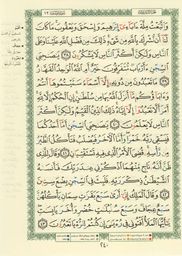 وَٱتَّبَعْتُ مِلَّةَ ءَابَآءِيٓ إِبْرَٰهِيمَ وَإِسْحَٰقَ وَيَعْقُوبَۚ مَا كَانَ
لَنَآ أَن نُّشْرِكَ بِٱللَّهِ مِن شَيْءٖۚ ذَٰلِكَ مِن فَضْلِ ٱللَّهِ عَلَيْنَا وَعَلَى
ٱلنَّاسِ وَلَٰكِنَّ أَكْثَرَ ٱلنَّاسِ لَا يَشْكُرُونَ ٣٨ يَٰصَٰحِبَيِ
ٱلسِّجْنِ ءَأَرْبَابٞ مُّتَفَرِّقُونَ خَيْرٌ أَمِ ٱللَّهُ ٱلْوَٰحِدُ ٱلْقَهَّارُ
٣٩ مَا تَعْبُدُونَ مِن دُونِهِۦٓ إِلَّآ أَسْمَآءٗ سَمَّيْتُمُوهَآ أَنتُمْ
وَءَابَآؤُكُم مَّآ أَنزَلَ ٱللَّهُ بِهَا مِن سُلْطَٰنٍۚ إِنِ ٱلْحُكْمُ إِلَّا
لِلَّهِ أَمَرَ أَلَّا تَعْبُدُوٓا۟ إِلَّآ إِيَّاهُۚ ذَٰلِكَ ٱلدِّينُ ٱلْقَيِّمُ وَلَٰكِنَّ أَكْثَرَ
ٱلنَّاسِ لَا يَعْلَمُونَ ٤٠ يَٰصَٰحِبَيِ ٱلسِّجْنِ أَمَّآ أَحَدُكُمَا
فَيَسْقِي رَبَّهُۥ خَمْرٗاۖ وَأَمَّا ٱلْأٓخَرُ فَيُصْلَبُ فَتَأْكُلُ ٱلطَّيْرُ
مِن رَّأْسِهِۦۚ قُضِيَ ٱلْأَمْرُ ٱلَّذِي فِيهِ تَسْتَفْتِيَانِ ٤١ وَقَالَ لِلَّذِي
ظَنَّ أَنَّهُۥ نَاجٖ مِّنْهُمَا ٱذْكُرْنِي عِندَ رَبِّكَ فَأَنسَىٰهُ
ٱلشَّيْطَٰنُ ذِكْرَ رَبِّهِۦ فَلَبِثَ فِي ٱلسِّجْنِ بِضْعَ سِنِينَ
٤٢ وَقَالَ ٱلْمَلِكُ إِنِّيٓ أَرَىٰ سَبْعَ بَقَرَٰتٖ سِمَانٖ يَأْكُلُهُنَّ
سَبْعٌ عِجَافٞ وَسَبْعَ سُنۢبُلَٰتٍ خُضْرٖ وَأُخَرَ يَابِسَٰتٖۖ
يَٰٓأَيُّهَا ٱلْمَلَأُ أَفْتُونِي فِي رُءْيَٰيَ إِن كُنتُمْ لِلرُّءْيَا تَعْبُرُونَ ٤٣
٢٤٠